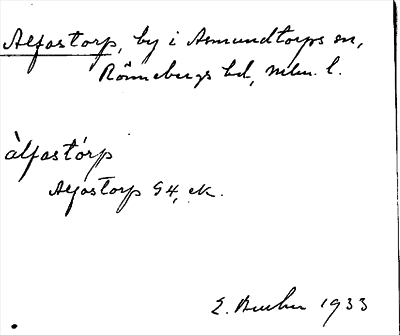 Alfastorp, by i Asmundtorps sn,
Rönnebergs hd, Mlm. l.
àlfastórp
Alfastorp G4, ek.
1933